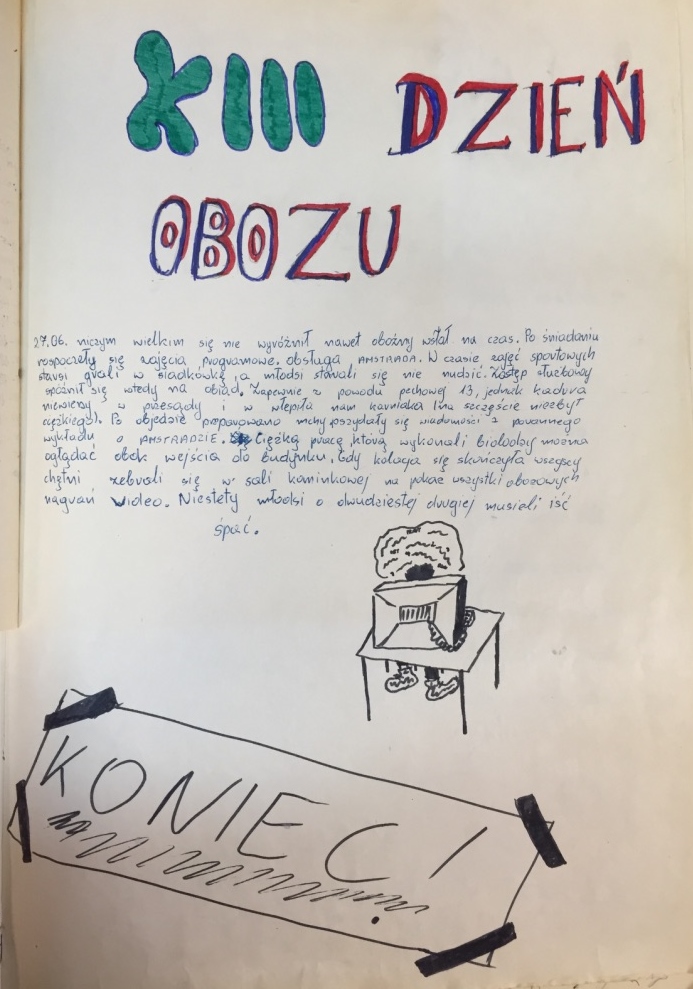 XIII DZIEŃ
OBOZU
27.06. niczym wielkim się nie wyróżnił nawet oboźny wstał na czas. Po śniadaniu
rospoczęły się zajęcia programowe. obsługa AMSTRADA. W czasie zajęć sportowych
starsi grali w siadkówkę, a młodsi starali się nie nudzić. Zastęp służbowy
spóźnił się wtedy na obiad. Zapewnie z powodu pechowej 13, jednak kadra
niewierzy w przesądy i w wlepiła nam karniaka (na szczęście niezbyt
ciężkiego). Po objedzie preparowano mchy poszydały się wiadomości z porannego
wykładu o AMSTRADZIE. Ciężką pracę którą wykonali biolodzy można
oglądać obok wejścia do budynku. Gdy kolacja się skończyła wszyscy
chętni zebrali się w sali kominkowej na pokaz wszystki obozowych
nagrań Video. Niestety młodsi o dwudziestej drugiej musieli iść
spać.
KONIEC!